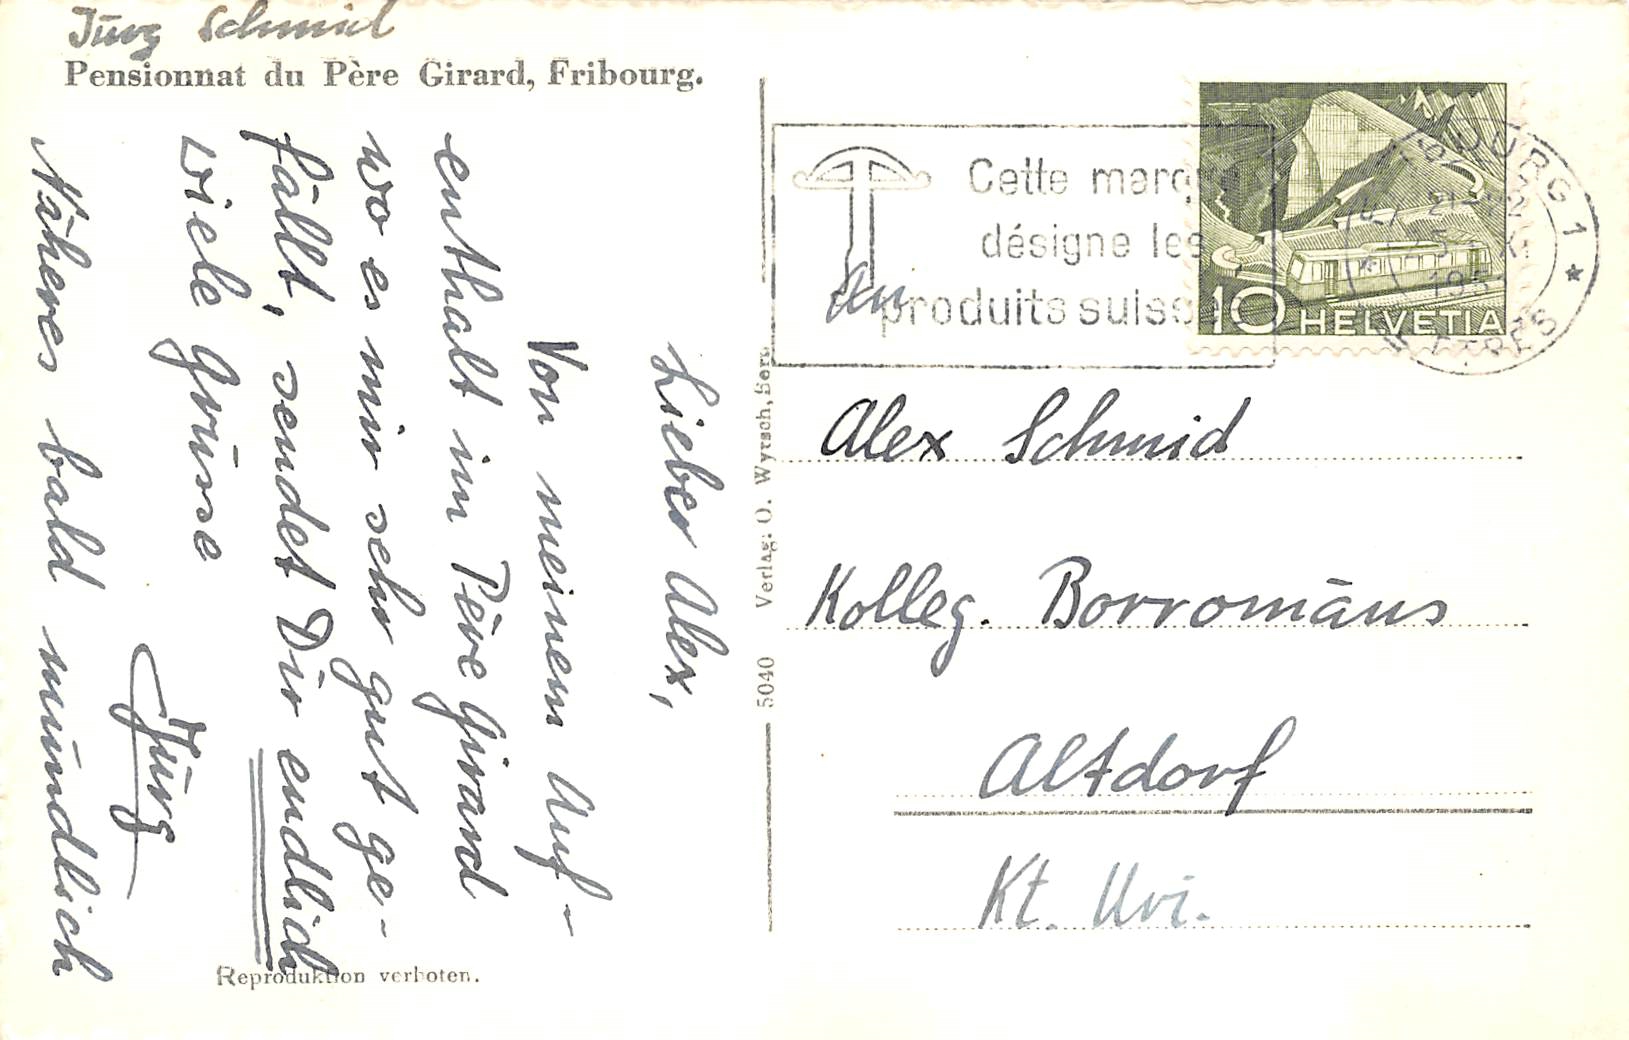 Jürg Schmid
Pensionnat du Père Girard, Fribourg.
Lieber Alex,
Von meinem Auf-
enthalt im Père Girard
wo es mir sehr gut ge-
fällt, sendet Dir endlich
viele Grüsse
Jürg
Näheres bald mündlich
Reproduktion verboten.
5040 Verlag: O. Wyrsch, Bern
Cette marque
désigne les
produits suisses
10 HELVETIA
BOURG 1
21-22
5. XI
195
LETTRES
An
Alex Schmid
Kolleg. Borromäus
Altdorf
Kt. Uri.